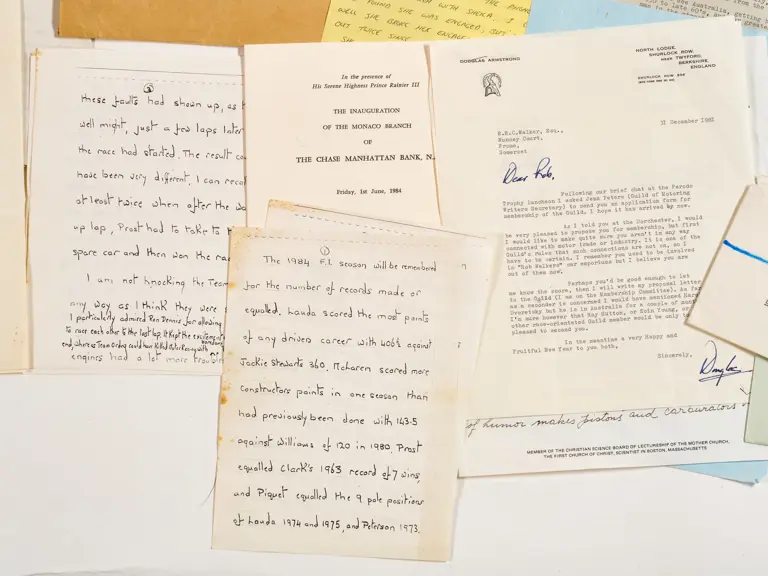 ③
These faults had shown up, as
well might, just a few laps later
the race had started. The result
have been very different. I can
at least twice when after the
up lap, Prost had to take to
spare car and then won the
I am not knocking the
any way as I think they were
I particularly admired Ron Dennis for allowing
to race each other to the last lap, it kept the
end, whereas Team Orders could have killed
engines had a lot more
In the presence of
His Serene Highness Prince Rainier III
THE INAUGURATION
OF THE MONACO BRANCH
OF
THE CHASE MANHATTAN BANK, N.
Friday, 1st June, 1984
①
The 1984 F.1. season will be remembered
for the number of records made or
equalled. Lauda scored the most points
of any drivers career with 406½ against
Jackie Stewarts 360. McLaren scored more
constructors points in one season than
had previously been done with 143.5
against Williams of 120 in 1980. Prost
equalled Clark's 1963 record of 7 wins,
and Piquet equalled the 9 pole positions
of Lauda 1974 and 1975, and Peterson 1973.
DOUGLAS ARMSTRONG
NORTH LODGE,
SHURLOCK ROW,
NEAR TWYFORD,
BERKSHIRE,
ENGLAND
11 December 1981
R.R.C.Walker, Esq.,
Nunney Court,
Frome,
Somerset
Dear Rob,
Following our brief chat at the Ferodo
Trophy luncheon I asked Jean Peters (Guild of Motoring
Writers Secretary) to send you an application form for
membership of the Guild. I hope it has arrived by now.
As I told you at the Dorchester, I would
be very pleased to propose you for membership, but first
I would like to make quite sure you aren't in any way
connected with motor trade or industry. It is one of the
Guild's rules that such connections are not on, so I
have to be certain. I remember you used to be involved
in "Rob Walker's" car emporiums but I believe you are
out of them now.
Perhaps you'd be good enough to let
me know the score, then I will write my proposal letter
to the Guild (I am on the Membership Committee). As far
as a seconder is concerned I would have mentioned
Dvoretsky but he is in Australia for a couple of
I'm sure however that Ray Hutton, or Eoin Young, or
other race-orientated Guild member would be only too
pleased to second you.
In the meantime a very Happy and
Fruitful New Year to you both,
Sincerely,
Douglas
of humor makes pistons and carburators
MEMBER OF THE CHRISTIAN SCIENCE BOARD OF LECTURESHIP OF THE MOTHER CHURCH,
THE FIRST CHURCH OF CHRIST, SCIENTIST IN BOSTON, MASSACHUSETTS